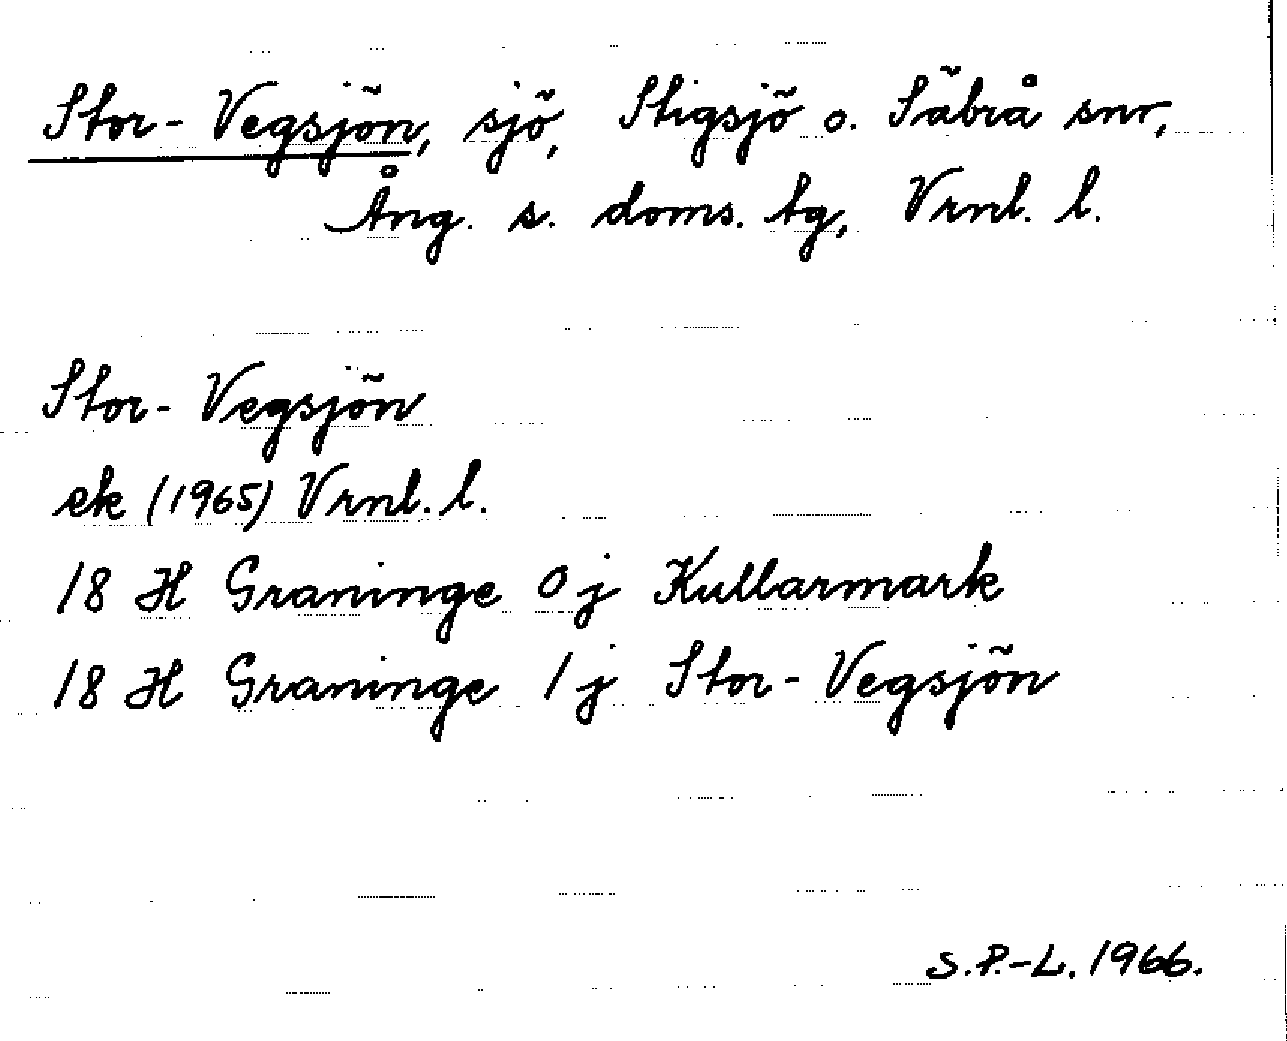 Stor-Vegsjön, sjö, Stigsjö o. Säbrå snr,
Ång. s. doms. tg, Vrnl. l.
Stor-Vegsjön
ek (1965) Vrnl. l.
18 H Graninge 0 j Kullarmark
18 H Graninge 1 j Stor-Vegsjön
S.P.-L. 1966.